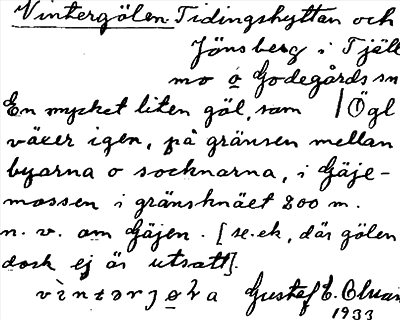 Vintergölen Tidingshyttan och
Jönsberg i Tjäll
mo o Godegårds sn
En mycket liten göl, som | Ögl
växer igen, på gränsen mellan
byarna o socknarna, i Gäje-
mossen i gränsknäet 200 m.
n. v. om Gäjen. [se. ek, där gölen
dock ej är utsatt].
Gustaf E.
1933